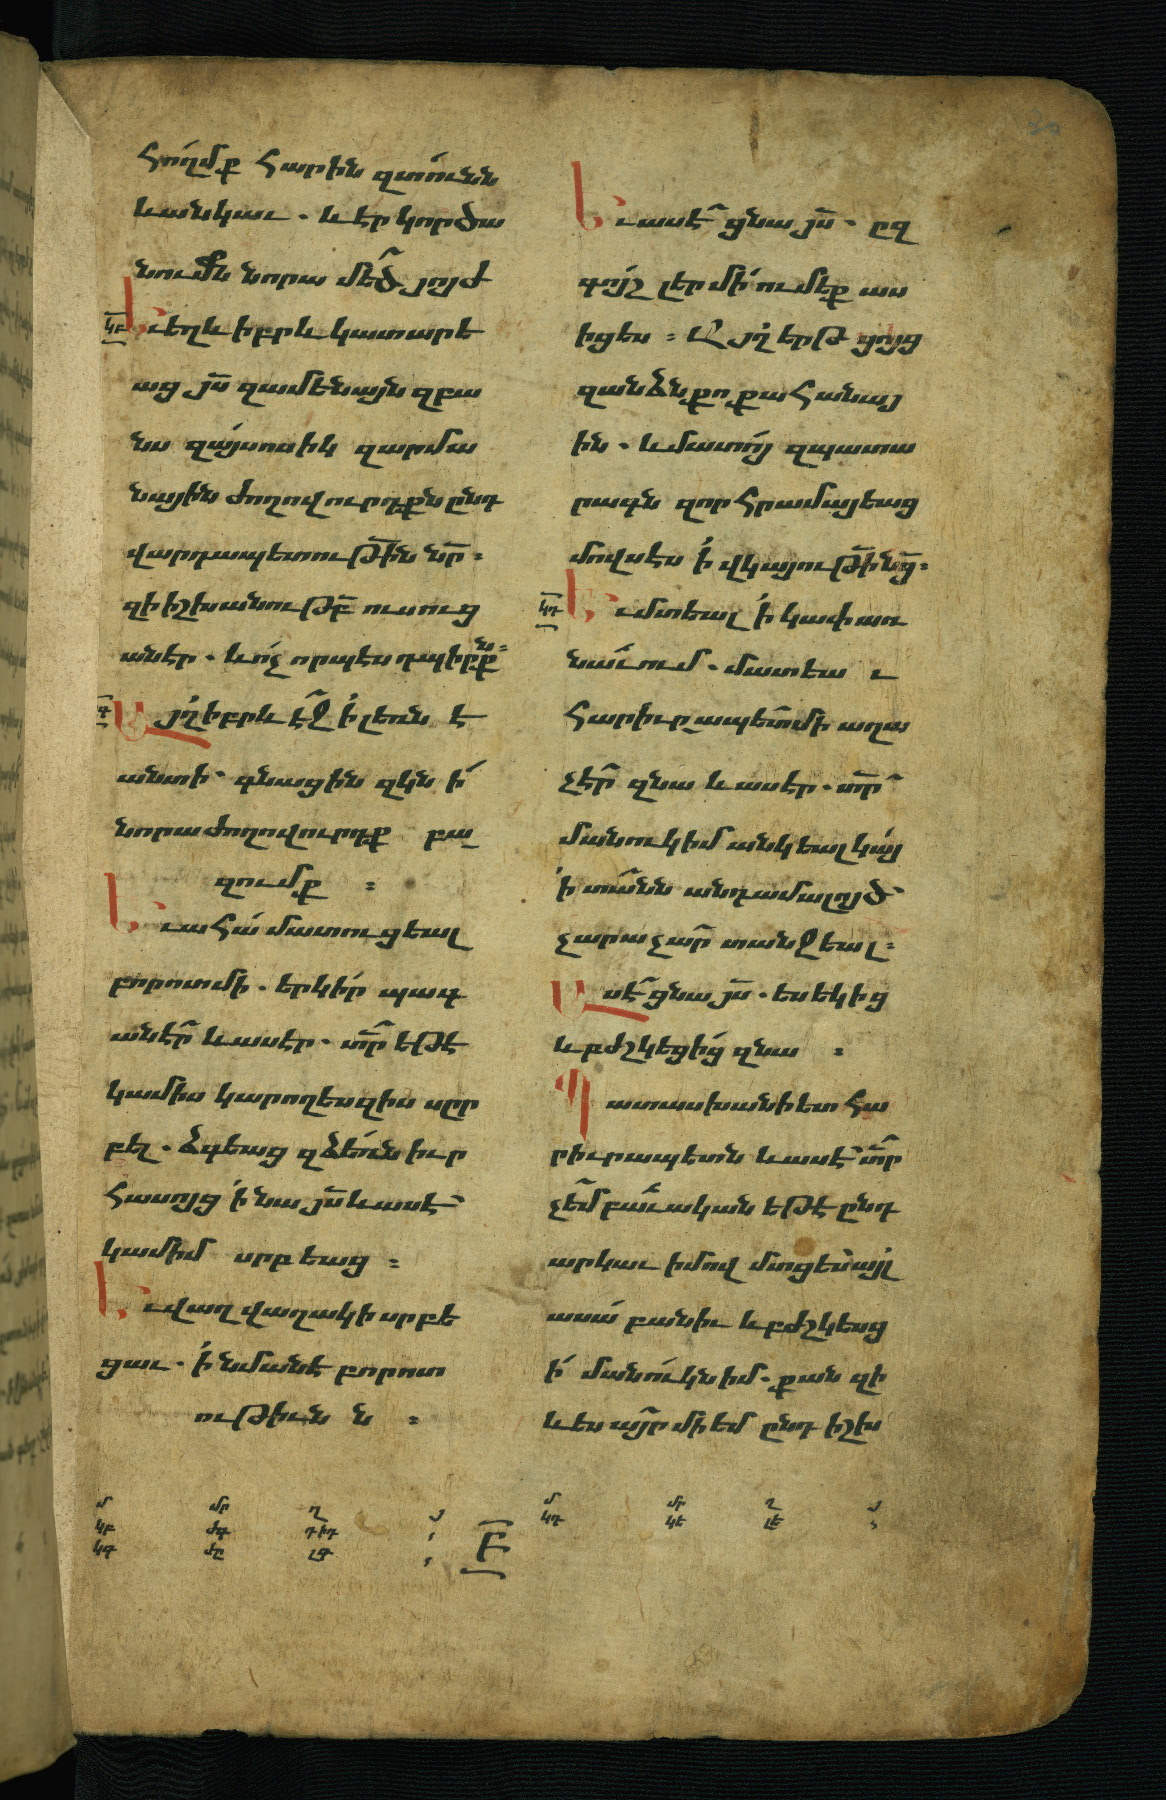 հողմք հարին զտունն
և անկաւ. և էր կործա
նումն նորա մեծ յոյժ
կբ Եւ եղև իբրև կատարե
աց յս զամենայն զբա
նս զայսոսիկ զարմա
նային ժողովուրդքն ընդ
վարդապետութիւն նր։
զի իշխանութբ ուսուց
աներ. և ոչ որպես դպիրքն։
կգ Այլ իբրև էջ ի լեռն է
անտի. գնացին զկն ի
նորա ժողովուրդք բա
զումք ։
Եւ ահա մատուցեալ
բորոտ մի. երկիր պագ
աներ և ասէր. տր եթէ
կամիս կարող ես զիս սըր
բել. ձգեաց զձեռն իւր
հասոյց ի նա յս և ասէ
կամիմ սրբեաց ։
Եւ վաղվաղակի սրբե
ցաւ. ի նմանէ բորոտ
ութիւնն ։
մ մր ղ յ
կբ ժգ դիդ
կգ ժը լգ
Բ
Եւ ասէ ցնա յս. ըզ
գոյշ լեր մի ումեք աս
իցես ։ Այլ երթ ցոյց
զանձն քո քահանայ
ին. և մատո զպատա
րագն զոր հրամայեաց
մովսէս ի վկայութիւն ց։
կդ Եւ մտեալ ի կափառ
նաւում. մատեաւ
հարիւրապետ մի աղա
չէր զնա և ասէր. տր
մանուկ իմ անկեալ կայ
ի տանն անդամալոյծ
չարաչար տանջեալ։
Ասէ ցնա յս. ես եկից
և բժշկեցից զնա ։
Պատասխանի ետ հա
րիւրապետն և ասէ տր
չեմ բաւական եթէ ընդ
արկաւ իմով մտցես այլ
ասա բանիւ և բժշկեսց
ի մանուկն իմ. քանզի
և ես այր մի եմ ընդ իշխ
մ մր ղ յ
կդ կե լե